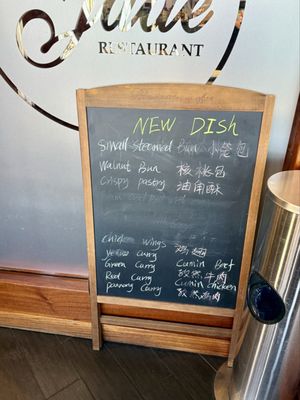 RESTAURANT
NEW DISh
Small steamed Bun 小笼包
Walnut Bun 核桃包
Crispy pastry 油角酥
chicken wings 鸡翅
yellow curry
Green Curry Cumin Beef
Red Curry 孜然牛肉
panang curry Cumin chicken
孜然鸡肉